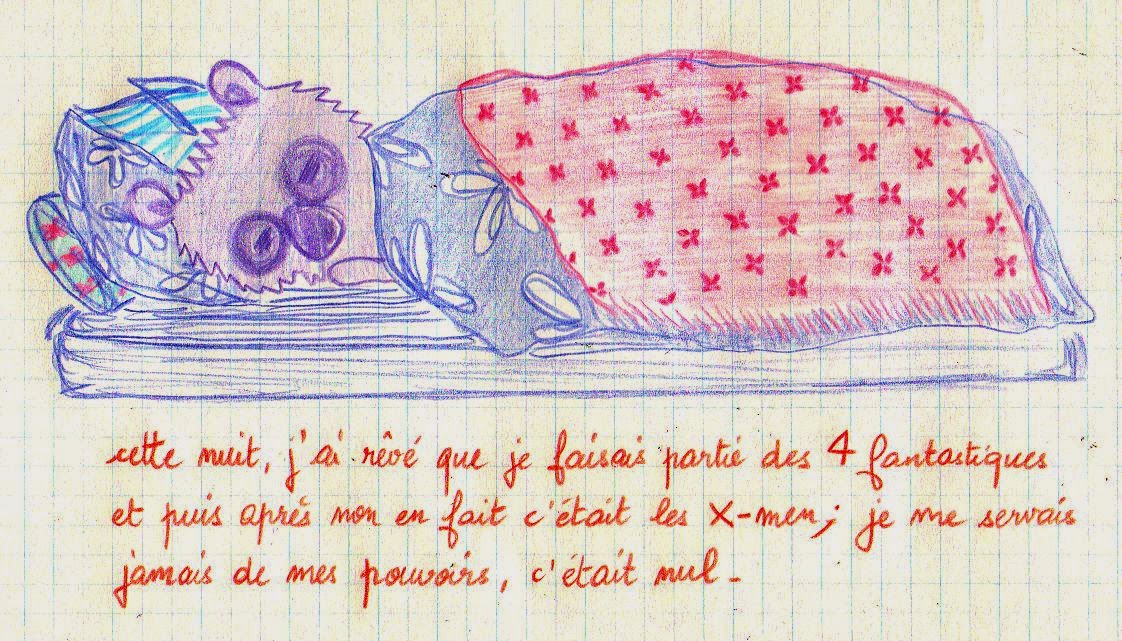 cette nuit, j'ai rêvé que je faisais partié des 4 fantastiques
et puis après non en fait c'était les X-men; je me servais
jamais de mes pouvoirs, c'était nul_